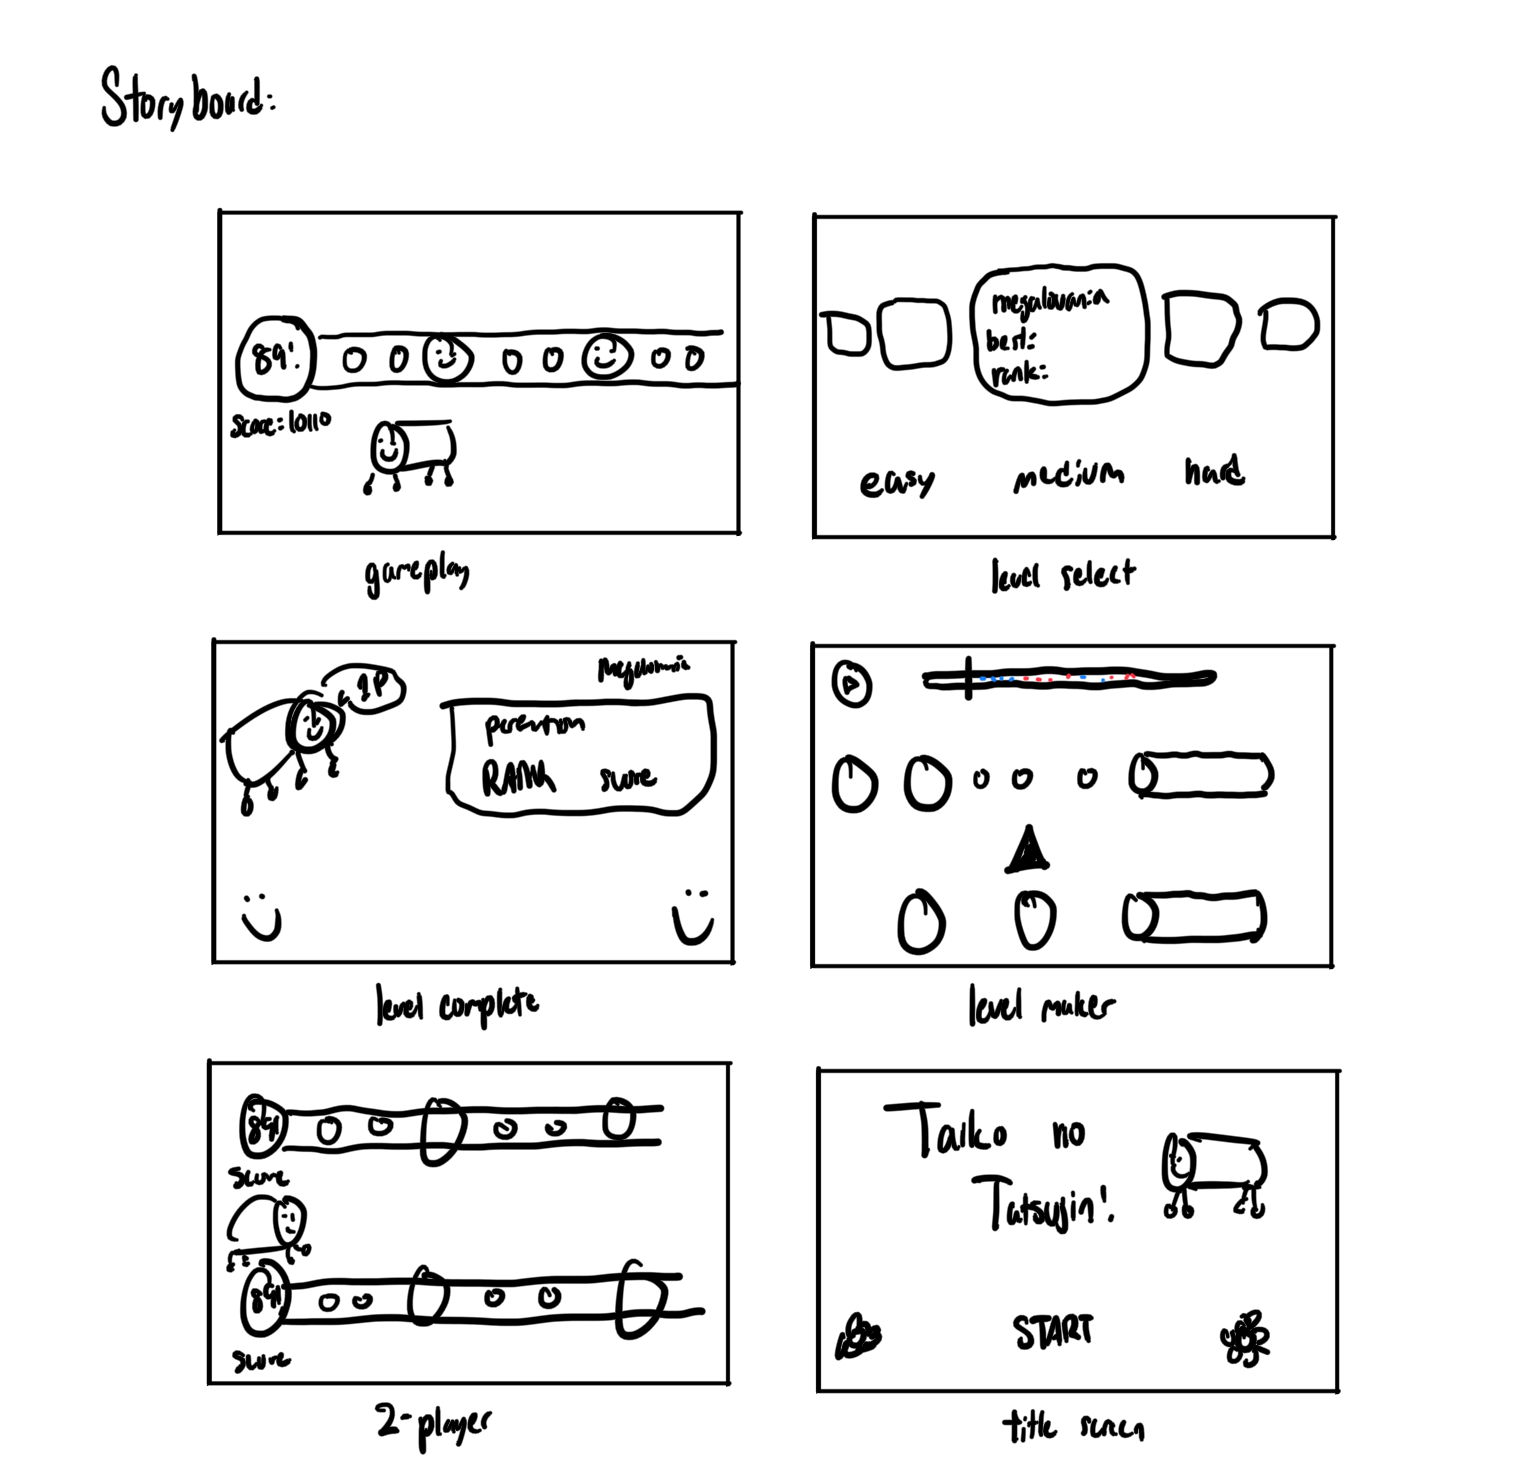 Storyboard:
89!
score: 10110
gameplay
megalovania
best:
rank:
easy medium hard
level select
1P
RANK score
level complete
level maker
89!
score
89!
score
2-player
Taiko no
Tatsujin!
START
title screen